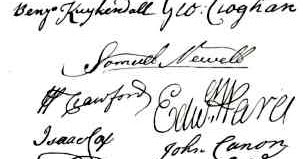 Benjᵃ Kuykendall Geo: Croghan
Samuel Newell
W Crawford Edwᵈ Ward
Isaac Cox John Canon